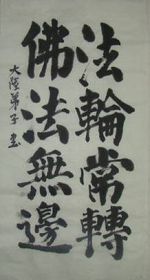 法輪常轉
佛法無邊
大陸弟子書